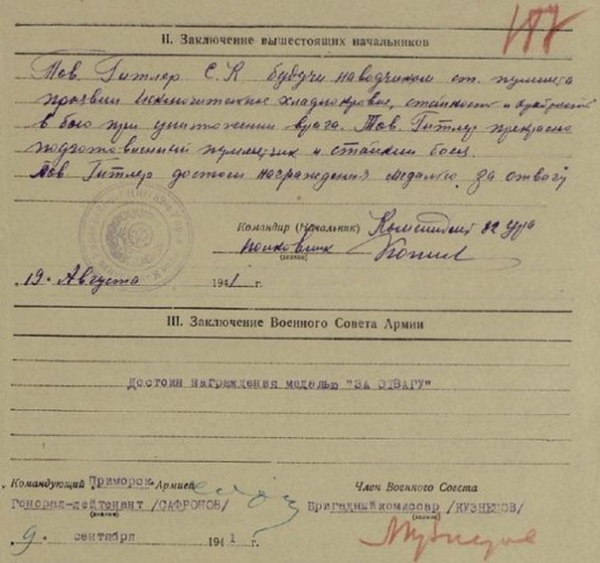 II. Заключение вышестоящих начальников
Тов. Гитлер С.К будучи наводчиком ст. пулемета
проявил исключительное хладнокровие, стойкость и храбрость
в бою при уничтожении врага. Тов. Гитлер прекрасно
подготовленный пулеметчик и стойкий боец.
Тов Гитлер достоин награждения медалью за отвагу
Командир (Начальник) Комендант 82 Ура
полковник
(звание)
19. Августа 1941 г.
III. Заключение Военного Совета Армии
Достоин награждения медалью "ЗА ОТВАГУ"
Командующий Приморск. Армией
Генерал-лейтенант /САФРОНОВ/
(звание)
9 сентября 1941 г.
Член Военного Совета
Бригадный комиссар /КУЗНЕЦОВ/
(звание)